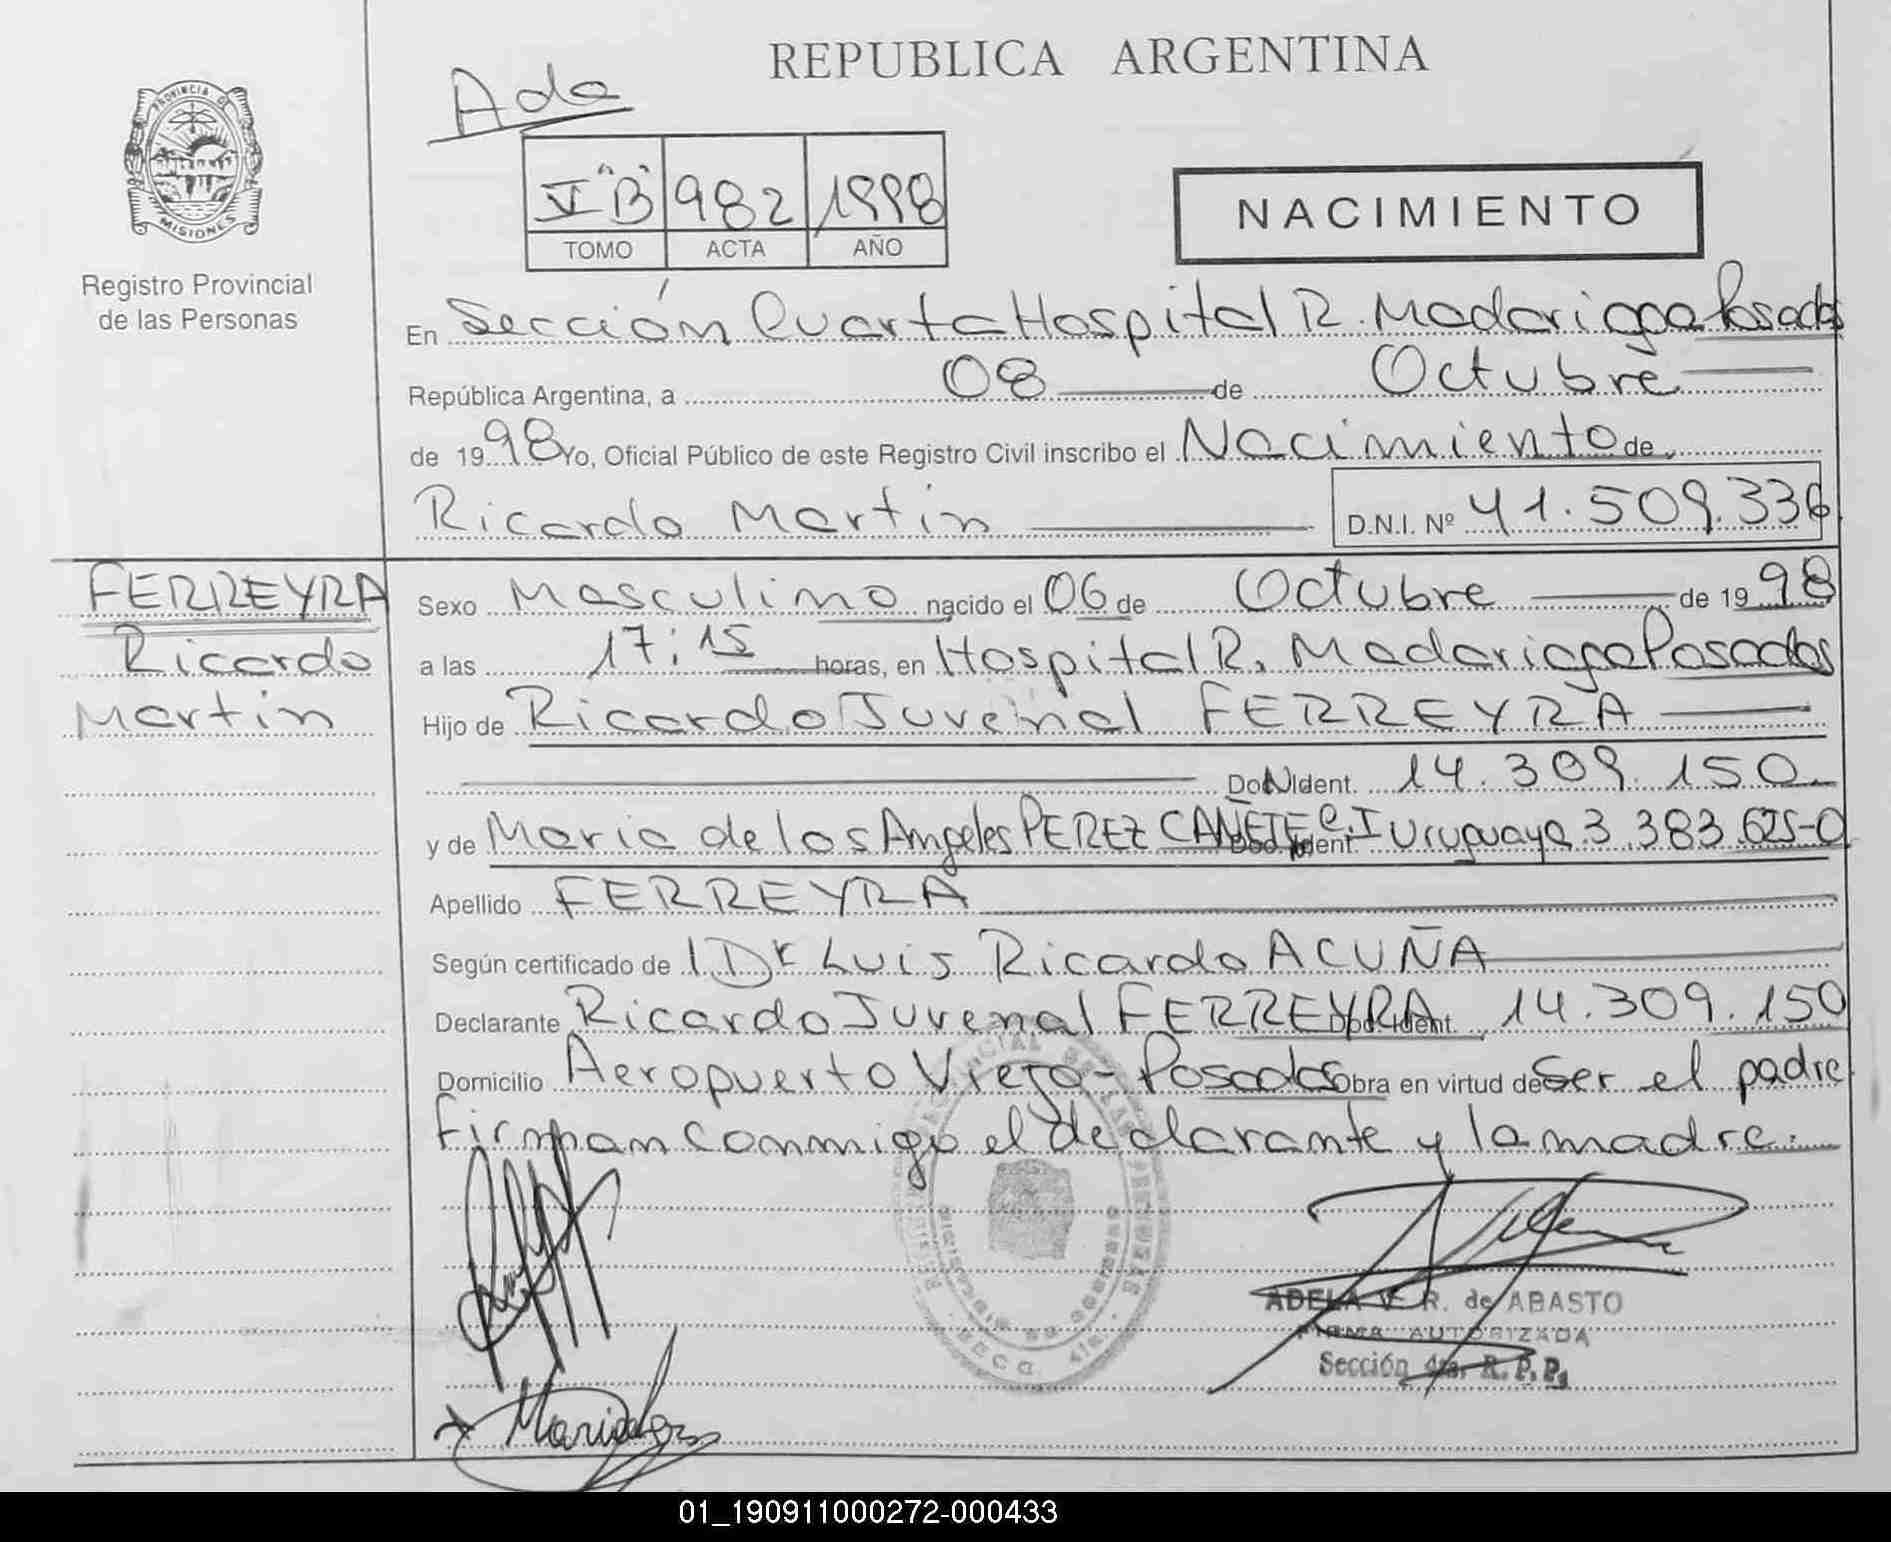 REPUBLICA ARGENTINA
Ada
PROVINCIA DE
MISIONES
Registro Provincial
de las Personas
V "B" 982 1998
TOMO ACTA AÑO
NACIMIENTO
En Sección Cuarta Hospital R. Madariaga Posadas
República Argentina, a 08 de Octubre
de 1998 Yo, Oficial Público de este Registro Civil inscribo el Nacimiento de
Ricardo Martin D.N.I. Nº 41.509.336
FERREYRA
Ricardo
Martin
Sexo Masculino nacido el 06 de Octubre de 1998
a las 17:15 horas, en Hospital R. Madariaga Posadas
Hijo de Ricardo Juvenal FERREYRA
Doc. Ident. 14.309.150
y de Maria de los Angeles PEREZ CAÑETE Doc. Ident C.I Uruguaya 3.383.625-0
Apellido FERREYRA
Según certificado de l Dr Luis Ricardo ACUÑA
Declarante Ricardo Juvenal FERREYRA Doc. Ident. 14.309.150
Domicilio Aeropuerto Viejo - Posadas Obra en virtud de Ser el padre
Firman conmigo el declarante y la madre.
ADELA V. R. de ABASTO
FIRMA AUTORIZADA
Sección 4ta. R. P. P.
01_190911000272-000433